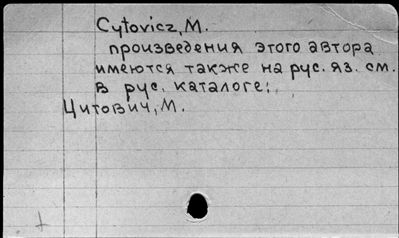 Cytovicz, M.
произведения этого автора
имеются также на рус. яз. см.
в рус. каталоге:
Цитович, М.